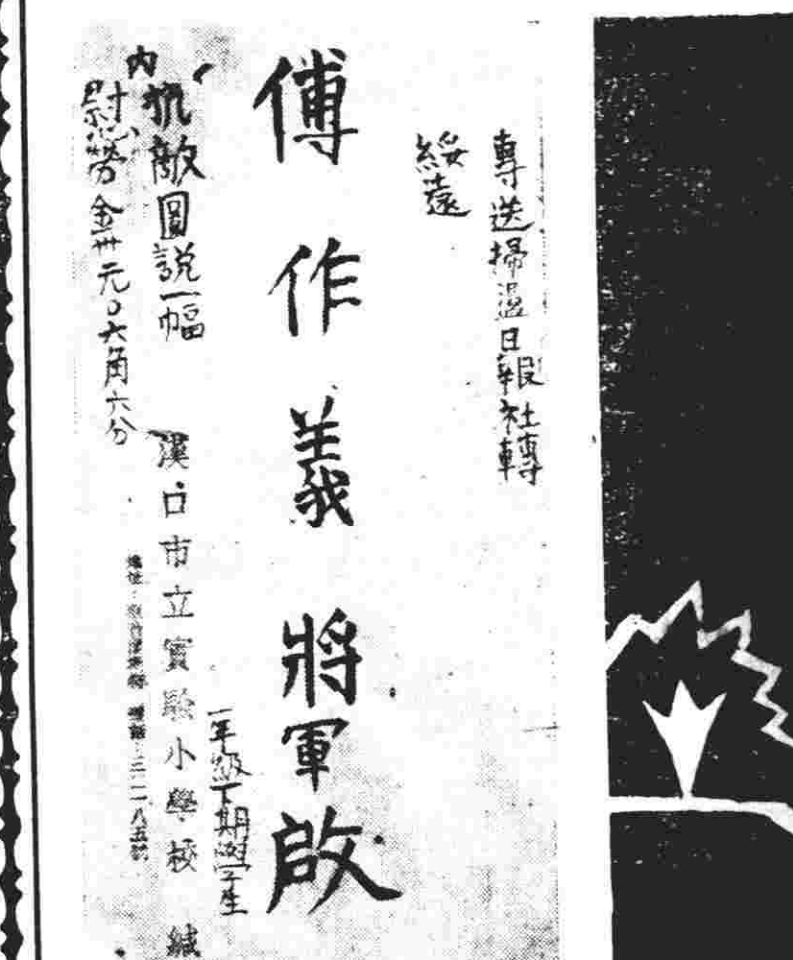 專送掃盪日報社轉
綏遠
傅作義將軍啟
一年級下期學生
漢口市立實驗小學校 緘
內抗敵圖說一幅
慰勞金卅元〇六角六分